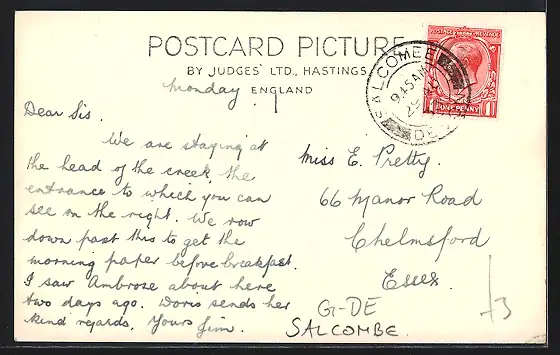 POSTCARD PICTURE
BY JUDGES' LTD., HASTINGS,
ENGLAND
Monday.
Dear Sis.
We are staying at
the head of the creek, the
entrance to which you can
see on the right. We row
down past this to get the
morning paper before breakfast.
I saw Ambrose about here
two days ago. Doris sends her
kind regards. Yours Jim.
SALCOMBE
9.45 AM
29
DE
POSTAGE REVENUE
ONE PENNY
1
Miss E. Pretty.
66 Manor Road
Chelmsford
Essex.
G-DE
SALCOMBE
£3